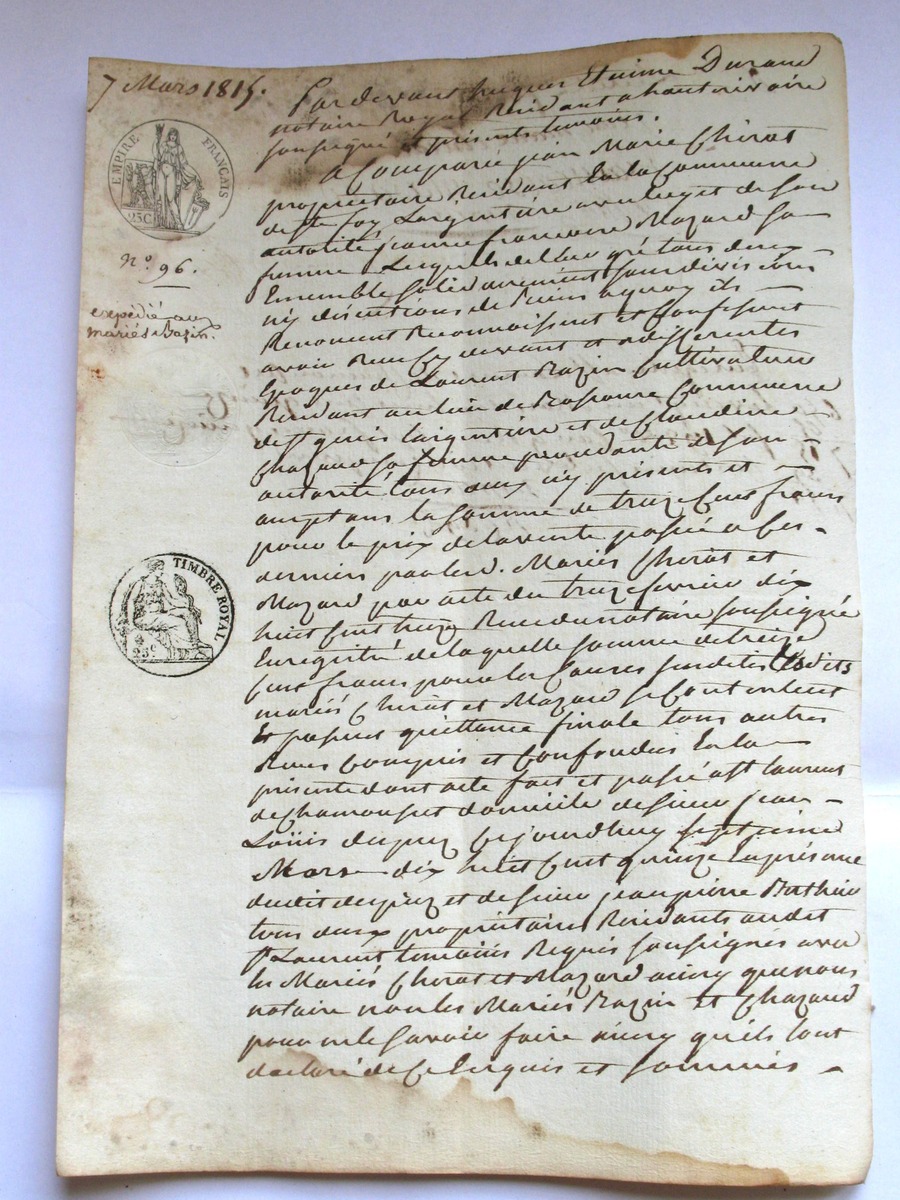 7 Mars 1815.
EMPIRE FRANÇAIS
25C
n.° 96.
expédié aux
mariés Bazin.
TIMBRE ROYAL
25c
Par devant hugues Etienne Durand
notaire Royal Résidant a hauterivoire
soussigné et présents temoins.
a Comparu jean Marie Chirat
propriétaire Résidant En la Commune
de Ste foy Largentière avec luy et de son
autorité jeanne françoise Mazard sa
femme Lesquels de Leur gré tous deux
Ensemble solidairement sans division
ny discutions de biens a quoy ils
Renoncent Reconnoissent et Confessent
avoir Reçu Cy devant et a differentes
Epoques de Laurent Bazin Cultivateur
Résidant au lieu de Commune
de St genis Largentiere et de Claudine
Chazaud sa femme procedante de son
autorité tous deux icy présents et
acceptans la somme de treize Cens francs
pour le prix de la vente passée a Ces
derniers par les d. Mariés Chirat et
Mazard par acte du treize fevrier dix
huit Cent treize Reçu du notaire soussigné
Enregistré de laquelle somme de treize
Cens francs pour les Causes susdites Lesdits
mariés Chirat et Mazard se Contentent
Et passent quittance finale tous autres
Reçus Compris et Confondus En la
présente dont acte fait et passé a St Laurent
de Chamousset domicile de sieur jean
Loüis dupuy Cejourdhuy septieme
Mars dix huit Cent quinze En présence
dudit dupuy et de sieur jean pierre
tous deux propriétaires Résidants audit
St Laurent temoins Requis soussignés avec
les Mariés Chirat et Mazard ainsy que nous
notaire non les Mariés Bazin et Chazaud
pour ne le savoir faire ainsy qu'ils l'ont
declaré de Ce Enquis et sommés